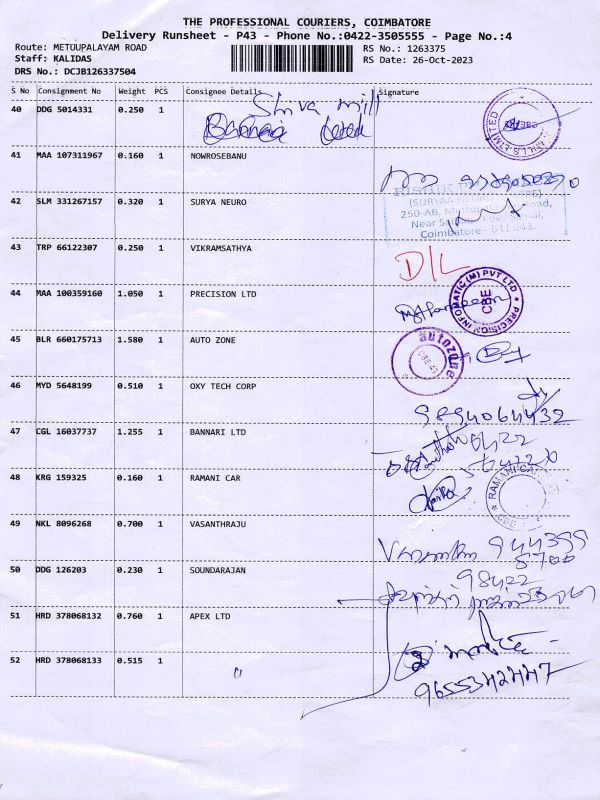 THE PROFESSIONAL COURIERS, COIMBATORE
Delivery Runsheet - P43 - Phone No.:0422-3505555 - Page No.:4
Route: METUUPALAYAM ROAD
RS No.: 1263375
Staff: KALIDAS
RS Date: 26-Oct-2023
DRS No.: DCJB126337504
S No Consignment No Weight PCS Consignee Details Signature
40 DDG 5014331 0.250 1 Shiva mill
41 MAA 107311967 0.160 1 NOWROSEBANU
42 SLM 331267157 0.320 1 SURYA NEURO
Coimbatore - 641 043.
43 TRP 66122307 0.250 1 VIKRAMSATHYA D/L
44 MAA 100359160 1.050 1 PRECISION LTD
PRECISION INFOMATIC (M) PVT LTD CBE
45 BLR 660175713 1.580 1 AUTO ZONE
autozone
46 MYD 5648199 0.510 1 OXY TECH CORP
9894064432
47 CGL 16037737 1.255 1 BANNARI LTD
48 KRG 159325 0.160 1 RAMANI CAR
RAMANI CAR
49 NKL 8096268 0.700 1 VASANTHRAJU
944399
8700
50 DDG 126203 0.230 1 SOUNDARAJAN
98422
51 HRD 378068132 0.760 1 APEX LTD
52 HRD 378068133 0.515 1 "
9655342447